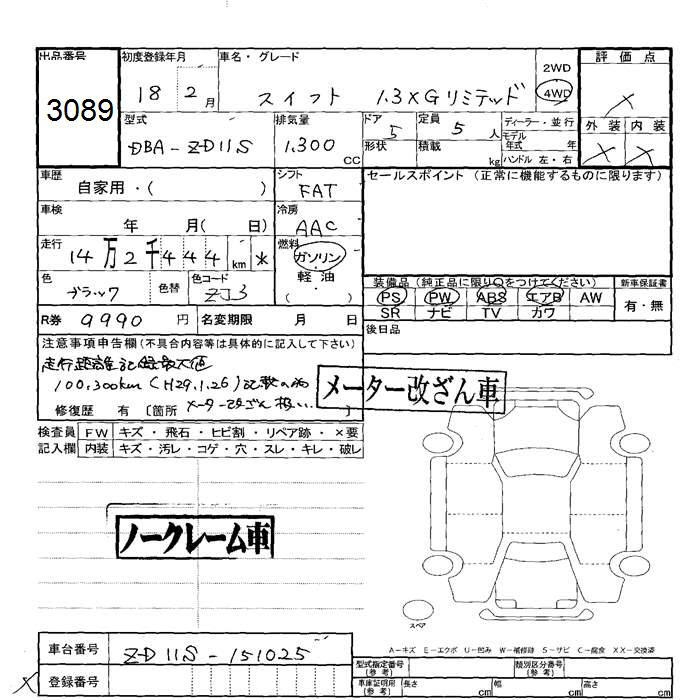 出品番号 初度登録年月 車名・グレード 2WD 評価点
3089 18 2月 スイフト 1.3XGリミテッド 4WD ×
型式 排気量 ドア 5 定員 5人 ディーラー・並行 外装 内装
DBA-ZD11S 1,300 CC 形状 積載 kg モデル年式 年 × ×
ハンドル 左・右
車歴 自家用・( ) シフト FAT セールスポイント(正常に機能するものに限ります)
車検 年 月( 日) 冷房 AAC
走行 14万2千444km * 燃料 ガソリン・軽油・( )
色 ブラック 色替 色コード ZJ3 装備品(純正品に限り○をつけてください) 新車保証書
PS PW ABS エアB AW 有・無
SR ナビ TV カワ
R券 9990円 名変期限 月 日 後日品
注意事項申告欄(不具合内容等は具体的に記入して下さい)
走行距離記録最大値
100,300km(H29.1.26)記載の為
メーター改ざん扱い
修復歴 有 [箇所 ]
メーター改ざん車
検査員 FW キズ・飛石・ヒビ割・リペア跡・×要
記入欄 内装 キズ・汚レ・コゲ・穴・スレ・キレ・破レ
ノークレーム車
スペア
A-キズ E-エクボ U-凹み W-補修跡 S-サビ C-腐食 XX-交換済
車台番号 ZD11S-151025
登録番号
×
型式指定番号(参考) 類別区分番号(参考)
車庫証明用(参考) 長さ cm 幅 cm 高さ cm